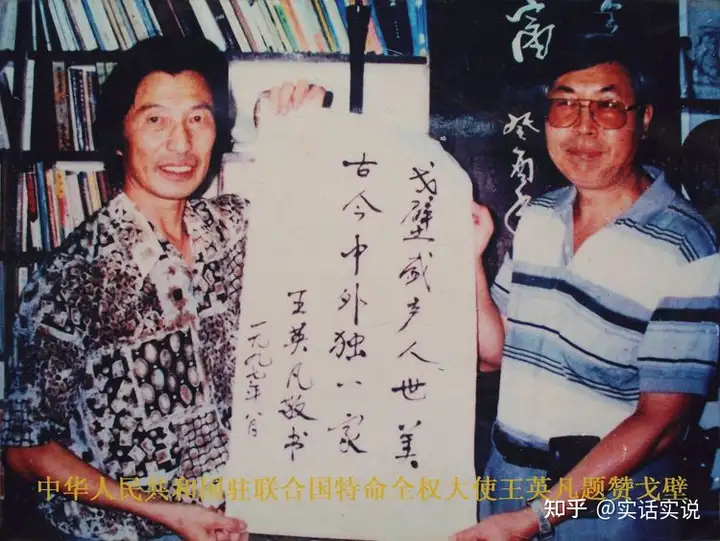 戈壁盛产人世美
古今中外独八家
王英凡敬书
一九九七年八月
癸酉年
中华人民共和国驻联合国特命全权大使王英凡题赞戈壁
知乎 @实话实说